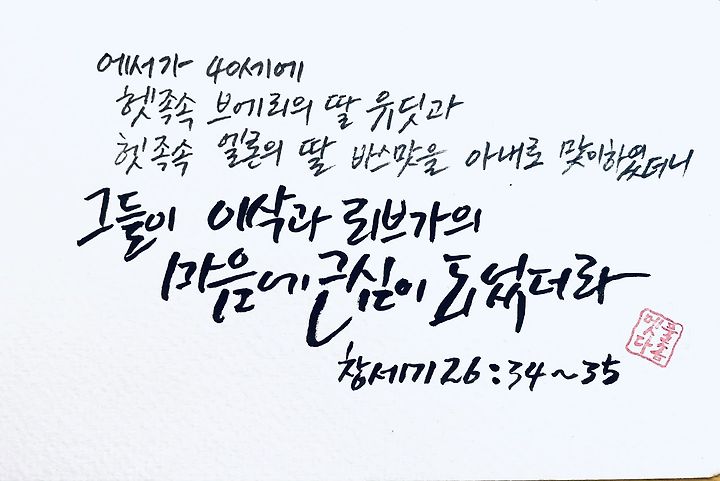 에서가 40세에
헷 족속 브에리의 딸 유딧과
헷 족속 엘론의 딸 바스맛을 아내로 맞이하였더니
그들이 이삭과 리브가의
마음에 근심이 되었더라
창세기 26:34~35